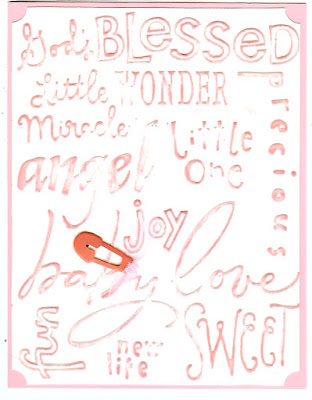 God's BLESSED
Little WONDER
Miracle
Little
One
Precious
angel
joy
baby love
fun
new
life
SWEET